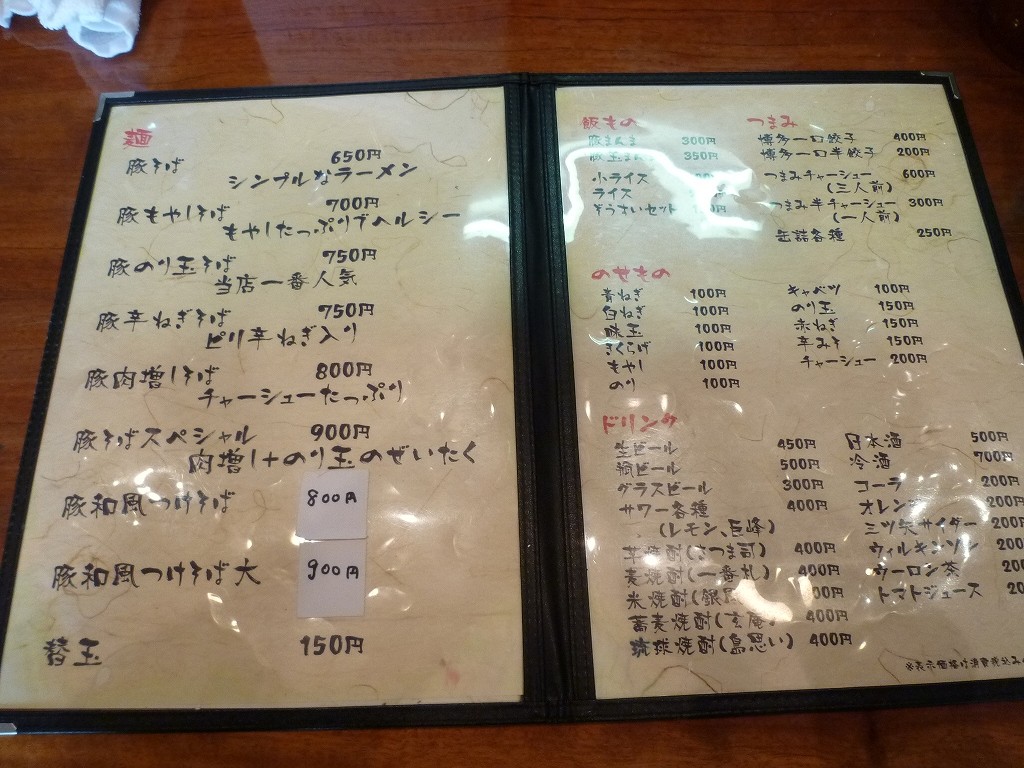 麺
豚そば 650円
シンプルなラーメン
豚もやしそば 700円
もやしたっぷりでヘルシー
豚のり玉そば 750円
当店一番人気
豚辛ねぎそば 750円
ピリ辛ねぎ入り
豚肉増しそば 800円
チャーシューたっぷり
豚そばスペシャル 900円
肉増し+のり玉のぜいたく
豚和風つけそば 800円
豚和風つけそば大 900円
替玉 150円
飯もの
豚まんま 300円
豚玉まんま 350円
小ライス
ライス
ぞうすいセット
つまみ
博多一口餃子 400円
博多一口半餃子 200円
つまみチャーシュー 600円
(三人前)
つまみ半チャーシュー 300円
(一人前)
缶詰各種 250円
のせもの
青ねぎ 100円
白ねぎ 100円
味玉 100円
きくらげ 100円
もやし 100円
のり 100円
キャベツ 100円
のり玉 150円
赤ねぎ 150円
辛みそ 150円
チャーシュー 200円
ドリンク
生ビール 450円
瓶ビール 500円
グラスビール 300円
サワー各種 400円
(レモン、巨峰)
芋焼酎(さつま司) 400円
麦焼酎(一番札) 400円
米焼酎(銀 00円
蕎麦焼酎(玄庵) 400円
琉球焼酎(島思い) 400円
日本酒 500円
冷酒 700円
コーラ 200円
オレンジ 200円
三ツ矢サイダー 200円
ウィルキンソン 200
ウーロン茶 200
トマトジュース 20
※表示価格は消費税込み